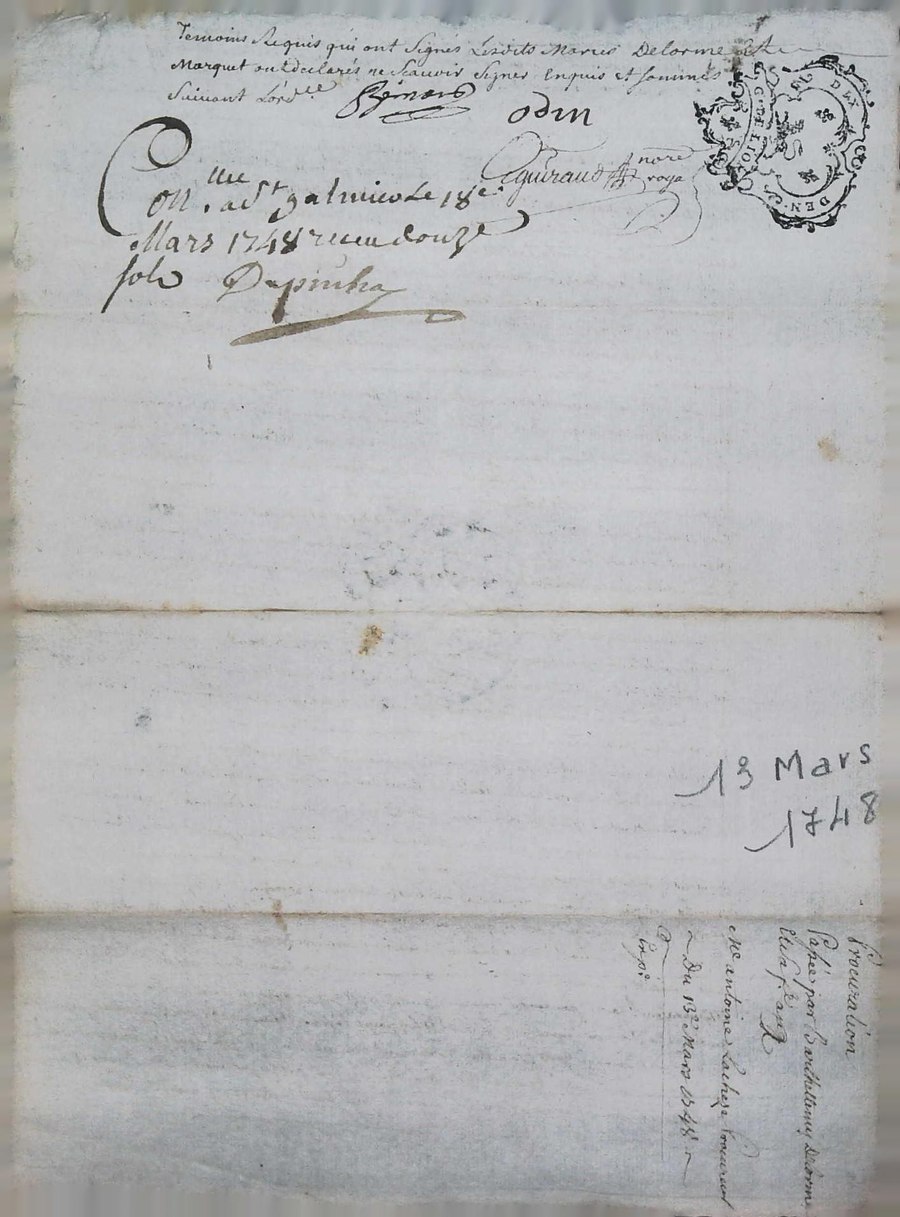 Temoins Requis qui ont Signés Lesdits Maries Delorme Et
Marquet ont declarés ne Scauoir Signer Enquis et Sommés
Suivant L'ord.ce
odin
notre
roya
Con.lle a St galmier Le 18e
Mars 1748 receu douze
sols
GE DE LION
DEN.
13 Mars
1748
Procuration
passée par Barthellemy Delorme
Et sa fe a
Me antoine Lacheze Procureur
Du 13e Mars 1748
Exp.